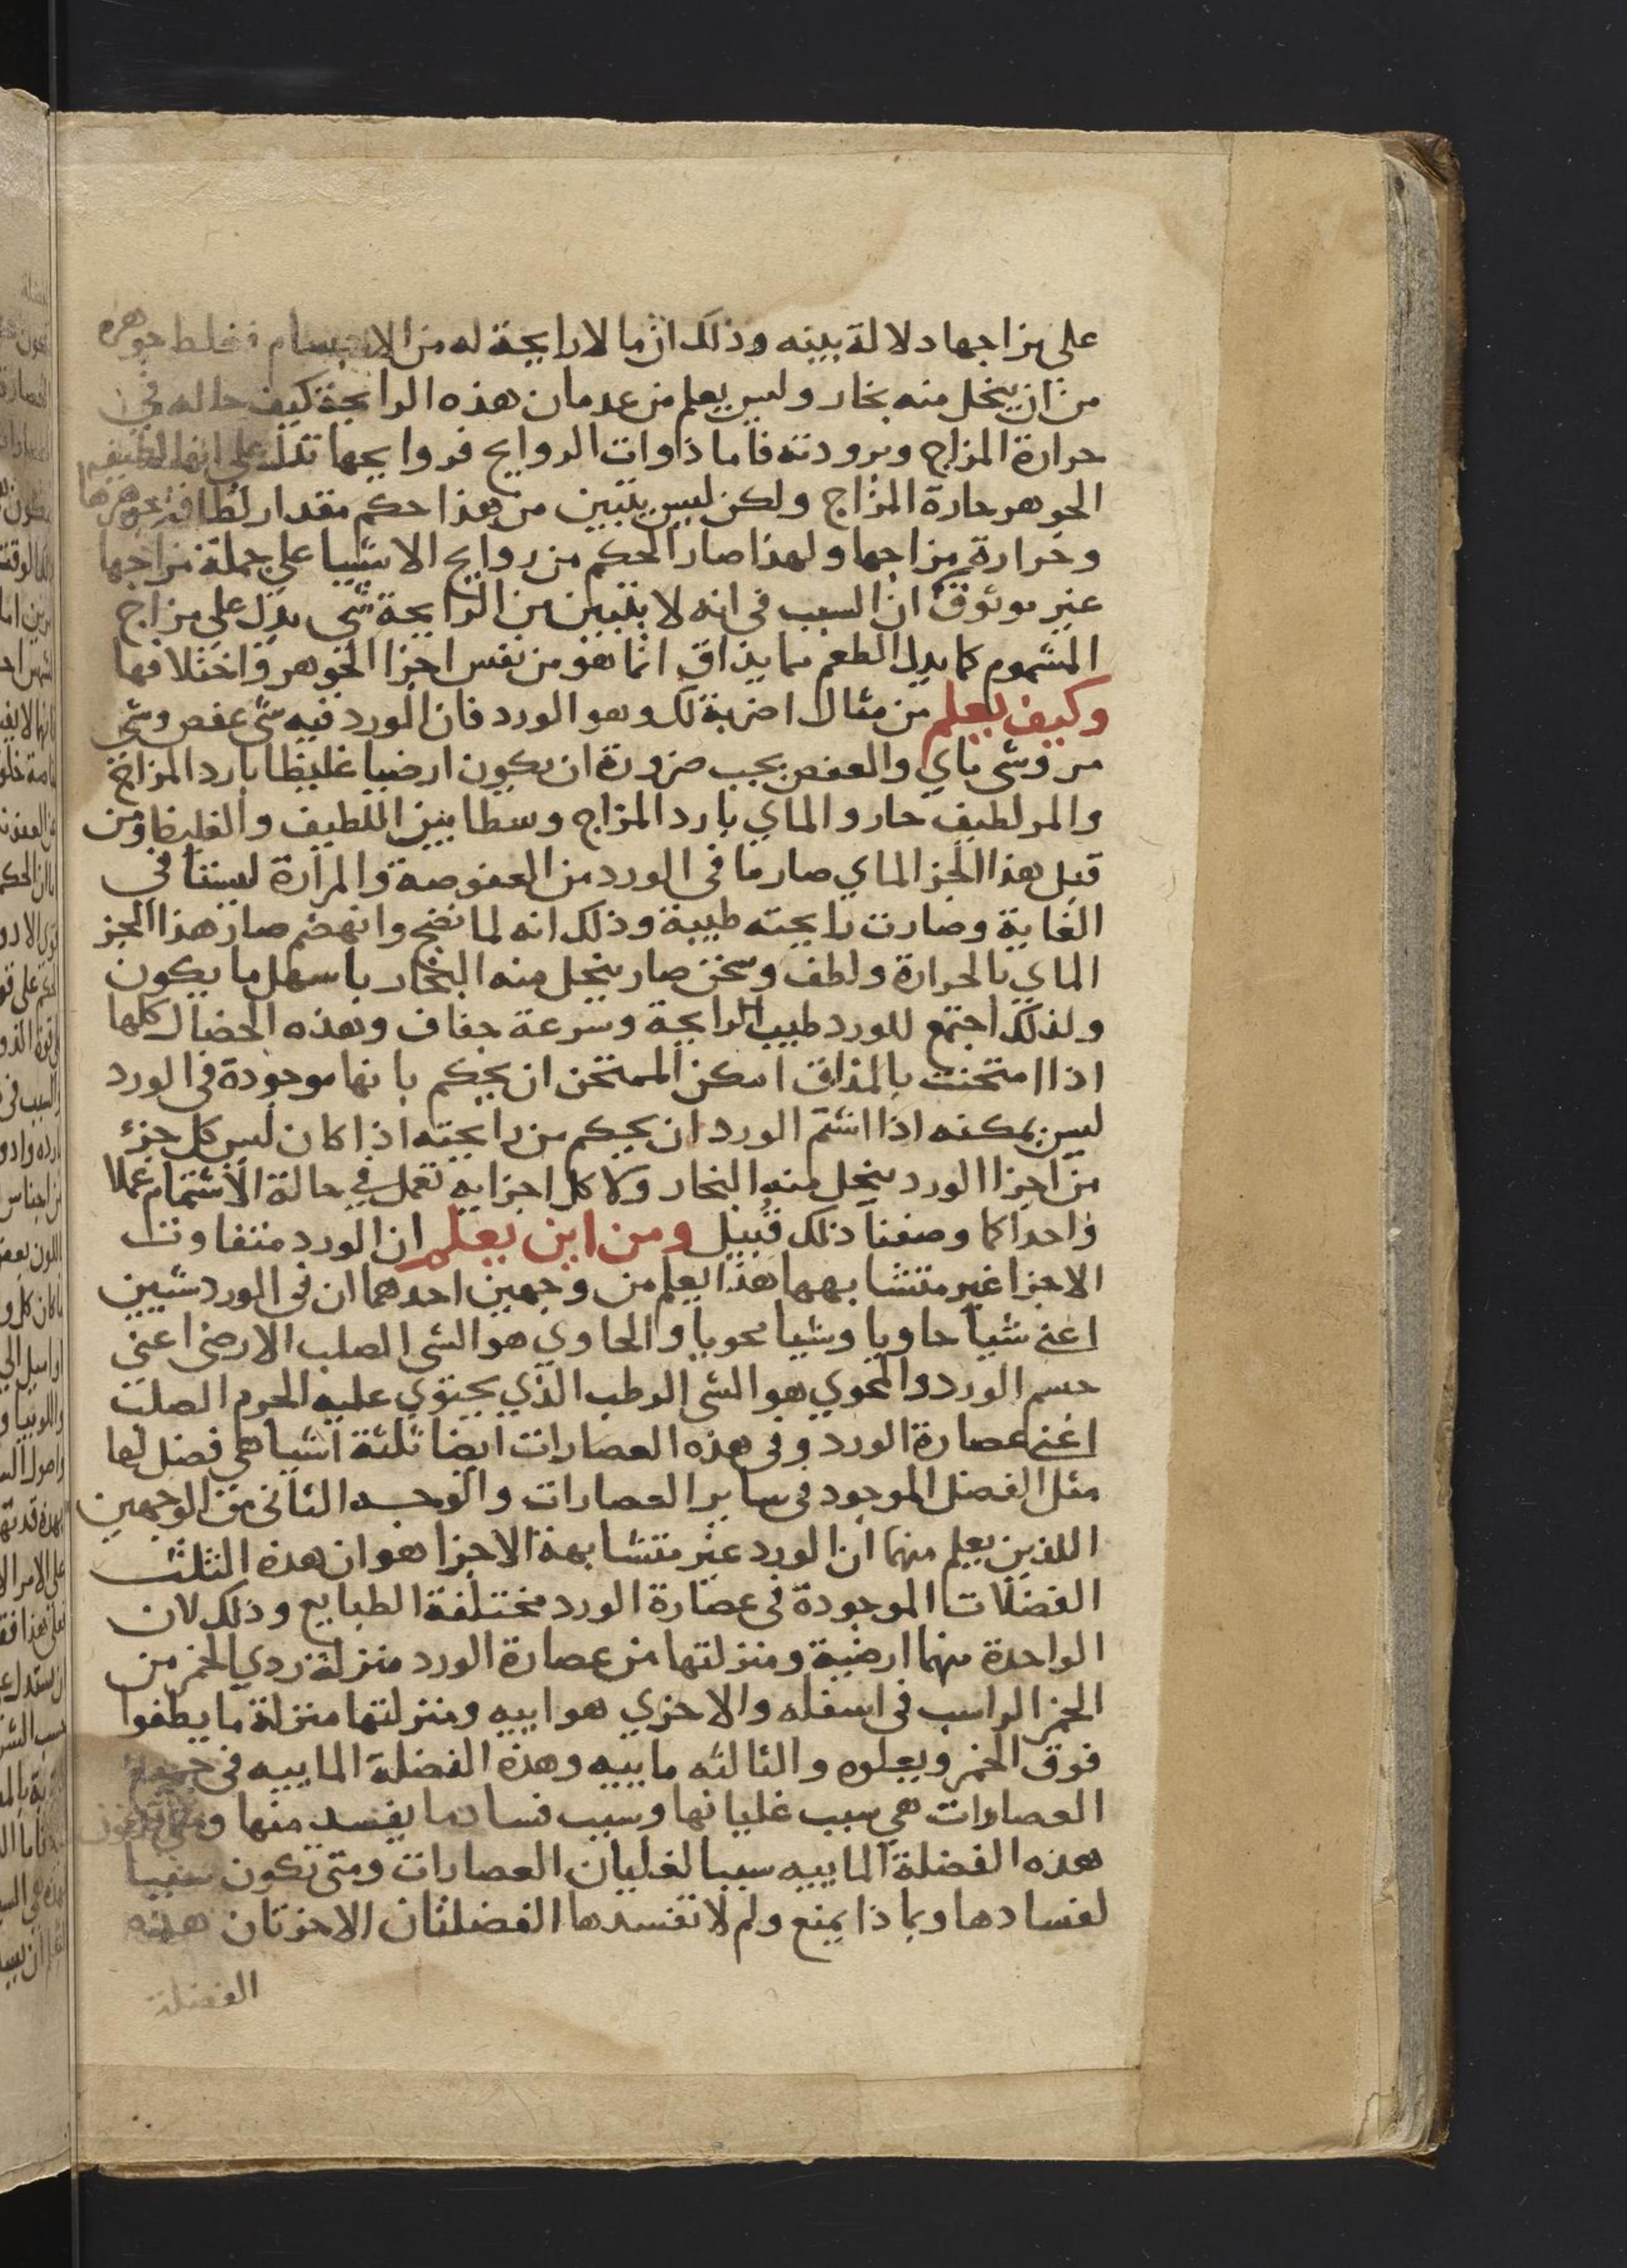 على مزاجها دلالة بينه وذلك ان ما لا رايحة له من الاجسام فغلط جوهره
من ان ينحل منه بخار وليس يعلم من عدمان هذه الرايحة كيف حاله في
حرارة المزاج وبرودته فاما ذاوات الروايح فروايحها تدل على انها لطيفه
الجوهر حارة المزاج ولكن ليس يتبين من هذا حكم مقدار لطافة جوهرها
وحرارة مزاجها ولهذا صار الحكم من روايح الاشيا على جملة مزاجها
غير موثوق ان السبب في انه لا يتبين من الرايحة شي يدل على مزاج
المشموم كما يدل الطعم مما يذاق انما هو من نفس اجزا الجوهر واختلافها
وكيف يعلم من مثال اضربة لك وهو الورد فان الورد فيه شي عفص وشي
مر وشي ماي والعفص يجب ضرورة ان يكون ارضيا غليظا بارد المزاج
والمر لطيف حار والماي بارد المزاج وسطا بين اللطيف والغليظ ومن
قبل هذا الجز الماي صار ما في الورد من العفوصة والمرارة ليستا في
الغاية وصارت رايحته طيبة وذلك انه لما نضج وانهضم صار هذا الجز
الماي بالحرارة ولطف وسخن صار ينحل منه البخار باسهل ما يكون
ولذلك اجتمع للورد طيب الرايحة وسرعة جفاف وهذه الخصال كلها
اذا امتحنت بالمذاق امكن الممتحن ان يحكم بانها موجودة في الورد
ليس يمكنه اذا اشتم الورد ان يحكم من رايحته اذا كان ليس كل جزء
من اجزا الورد ينحل منه البخار ولا كل اجزايه تفعل في حالة الاشتمام عملا
واحدا كما وصفنا ذلك قبيل ومن اين يعلم ان الورد متفاوت
الاجزا غير متشابهها هذا يعلم من وجهين احدهما ان في الورد شيين
اعني شيا حاويا وشيا محويا والحاوي هو الشي الصلب الارضي اعني
جسم الورد والمحوي هو الشي الرطب الذي يحتوي عليه الجرم الصلب
اعني عصارة الورد وفي هذه العصارات ايضا ثلثة اشيا هي فضل لها
مثل الفضل الموجود في ساير العصارات والوجه الثاني من الوجهين
اللذين يعلم منهما ان الورد غير متشابهة الاجزا هو ان هذه الثلث
الفضلات الموجودة في عصارة الورد مختلفة الطبايع وذلك لان
الواحدة منهما ارضية ومنزلتها من عصارة الورد منزلة ردي الخمر من
الخمر الراسب في اسفله والاخري هواييه ومنزلتها منزلة ما يطفوا
فوق الخمر ويعلوه والثالثه ماييه وهذه الفضلة الماييه في جميع
العصارات هي سبب غليانها وسبب فساد ما يفسد منها ومتى تكون
هذه الفضلة الماييه سببا لغليان العصارات ومتى تكون سببا
لفسادها وبماذا يمنع ولم لا تفسدها الفضلتان الاخرتان هذه
الفضلة